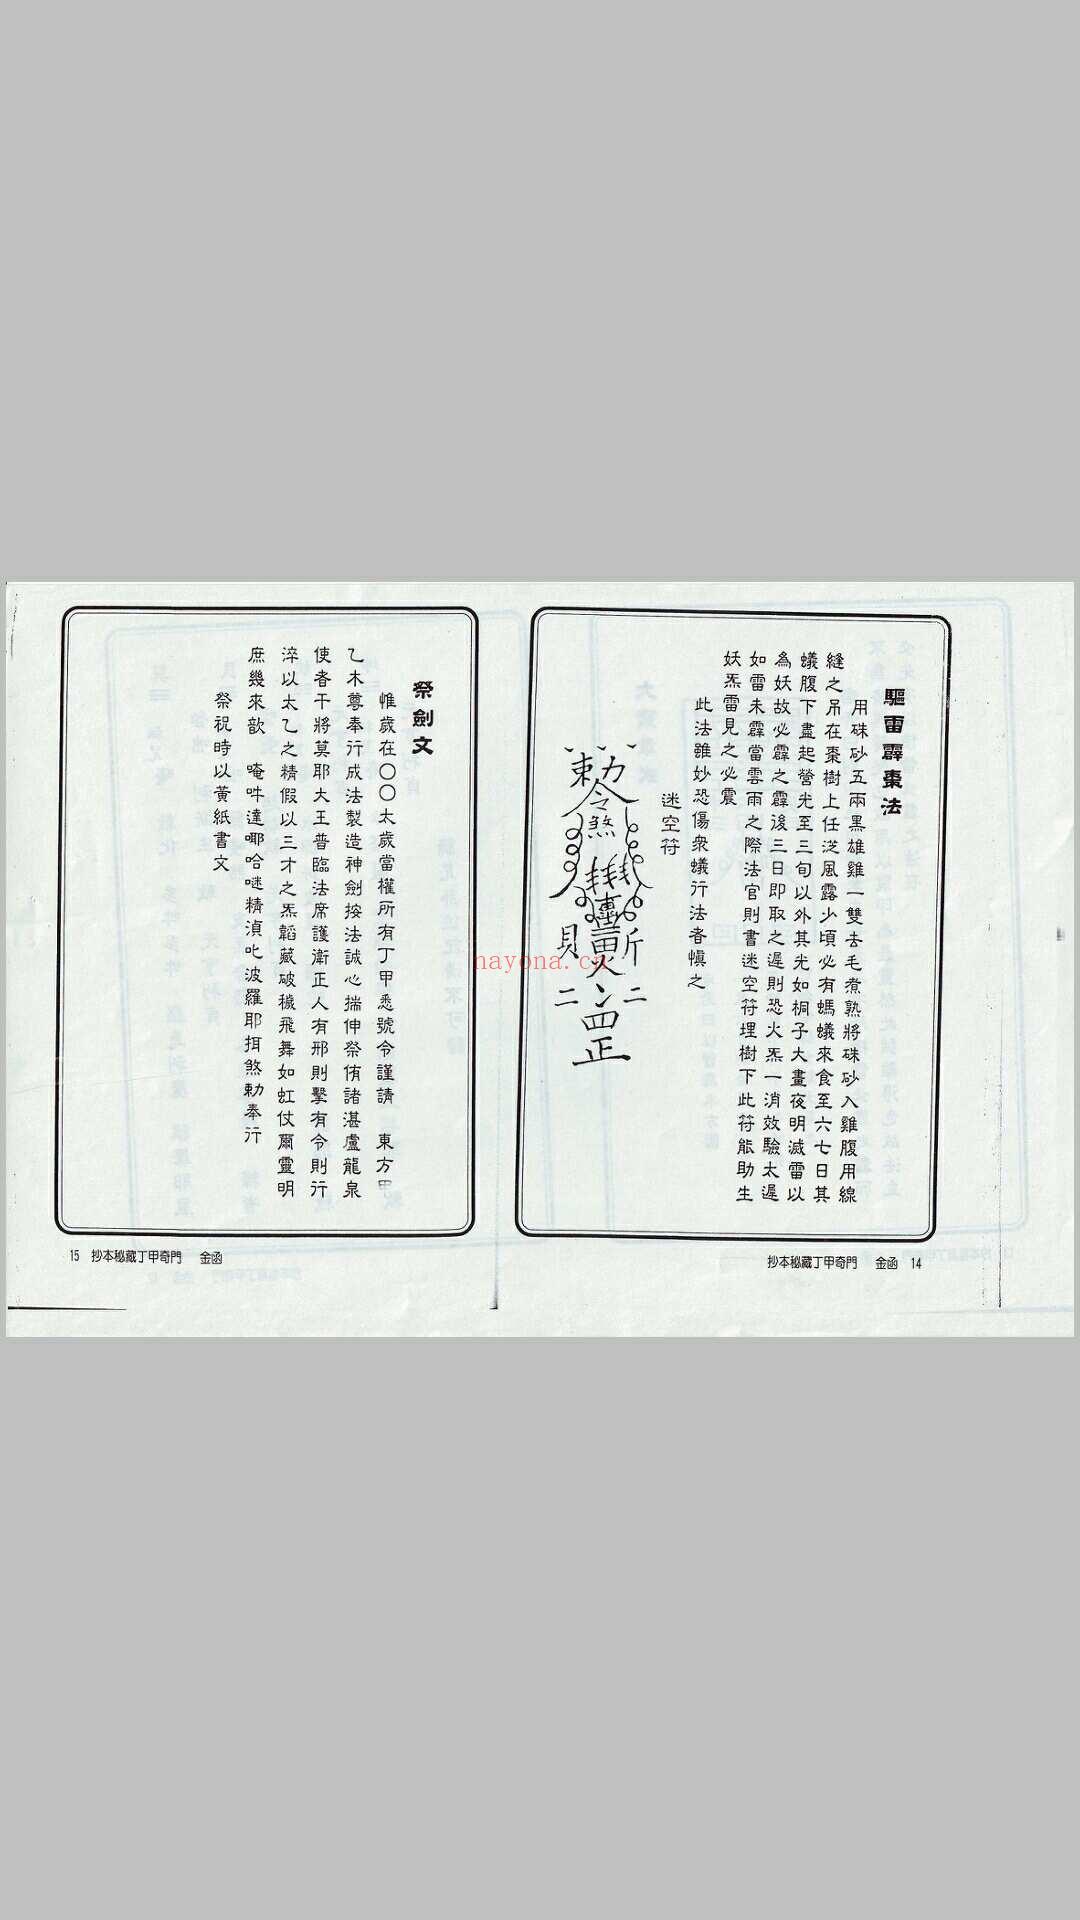 驅雷霹棗法
用硃砂五兩黑雄雞一雙去毛煮熟將硃砂入雞腹用線
縫之吊在棗樹上任從風露少頃必有螞蟻來食至六七日其
蟻腹下盡起螢光至三旬以外其光如桐子大晝夜明滅雷以
為妖故必霹之霹後三日即取之遲則恐火炁一消效驗太遲
如雷未霹當雲雨之際法官則書迷空符埋樹下此符能助生
妖炁雷見之必震
此法雖妙恐傷衆蟻行法者慎之
迷空符
勅令
煞
斤
貝
火
二 二
四
正
抄本秘藏丁甲奇門 金函 14
祭劍文
惟歲在〇〇太歲當權所有丁甲悉號令謹請 東方甲
乙木尊奉行成法製造神劍按法誠心揣伸祭侑諸湛盧龍泉
使者干將莫耶大王普臨法席護衛正人有邪則擊有令則行
淬以太乙之精假以三才之炁韜藏破穢飛舞如虹仗爾靈明
庶幾來歆 唵吽達哪哈嗞精滇叱波羅耶揖煞勅奉行
祭祝時以黃紙書文
15 抄本秘藏丁甲奇門 金函
nayona.cn